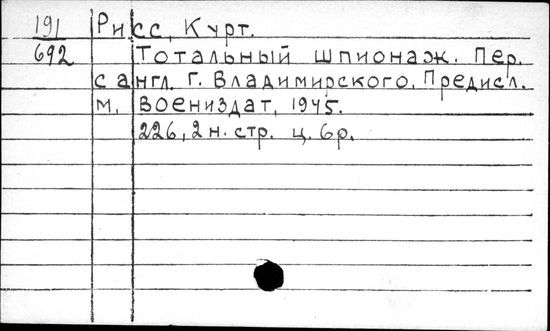 191 Рисс, Курт.
692 Тотальный шпионаж. Пер.
с англ. Г. Владимирского. Предисл.
М., Воениздат, 1945.
226, 2 н. стр. ц. 6р.